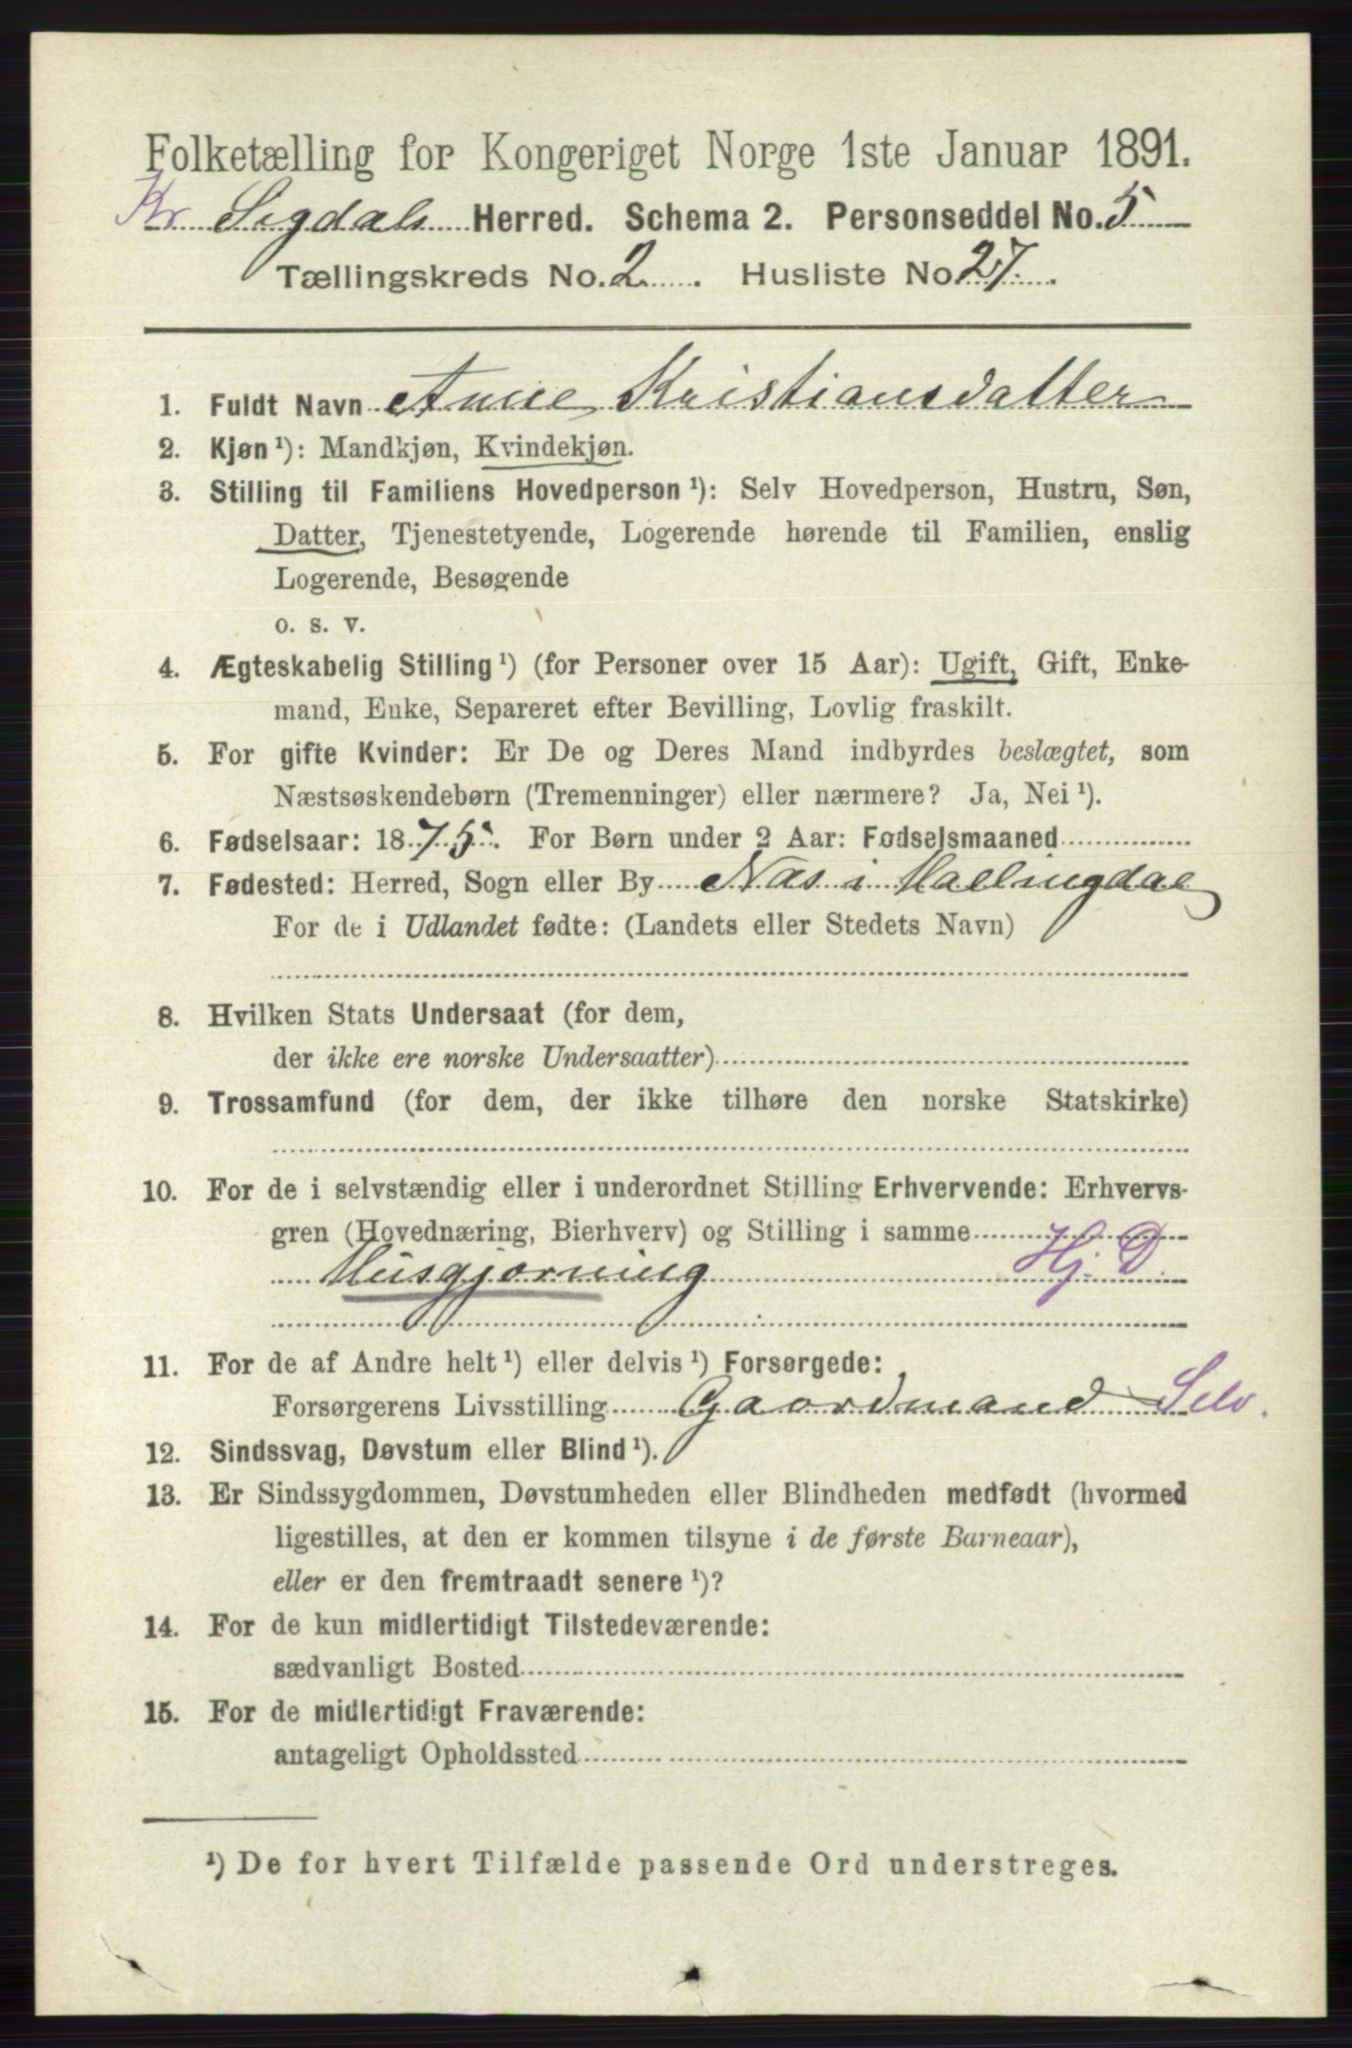 Folketælling for Kongeriget Norge 1ste Januar 1891.
Kr Sigdals Herred. Schema 2. Personseddel No. 5
Tællingskreds No. 2. Husliste No. 27.
1. Fuldt Navn Anne Kristiansdatter
2. Kjøn ¹): Mandkjøn, Kvindekjøn.
3. Stilling til Familiens Hovedperson ¹): Selv Hovedperson, Hustru, Søn,
Datter, Tjenestetyende, Logerende hørende til Familien, enslig
Logerende, Besøgende
o. s. v.
4. Ægteskabelig Stilling ¹) (for Personer over 15 Aar): Ugift, Gift, Enke-
mand, Enke, Separeret efter Bevilling, Lovlig fraskilt.
5. For gifte Kvinder: Er De og Deres Mand indbyrdes beslægtet, som
Næstsøskendebørn (Tremenninger) eller nærmere? Ja, Nei ¹).
6. Fødselsaar: 1875. For Børn under 2 Aar: Fødselsmaaned
7. Fødested: Herred, Sogn eller By Nas i Hallingdal
For de i Udlandet fødte: (Landets eller Stedets Navn)
8. Hvilken Stats Undersaat (for dem,
der ikke ere norske Undersaatter)
9. Trossamfund (for dem, der ikke tilhøre den norske Statskirke)
10. For de i selvstændig eller i underordnet Stilling Erhvervende: Erhvervs-
gren (Hovednæring, Bierhverv) og Stilling i samme
Husgjorning Hj. D.
11. For de af Andre helt ¹) eller delvis ¹) Forsørgede:
Forsørgerens Livsstilling Gaardmand Selv.
12. Sindssvag, Døvstum eller Blind ¹).
13. Er Sindssygdommen, Døvstumheden eller Blindheden medfødt (hvormed
ligestilles, at den er kommen tilsyne i de første Barneaar),
eller er den fremtraadt senere ¹)?
14. For de kun midlertidigt Tilstedeværende:
sædvanligt Bosted
15. For de midlertidigt Fraværende:
antageligt Opholdssted
¹) De for hvert Tilfælde passende Ord understreges.